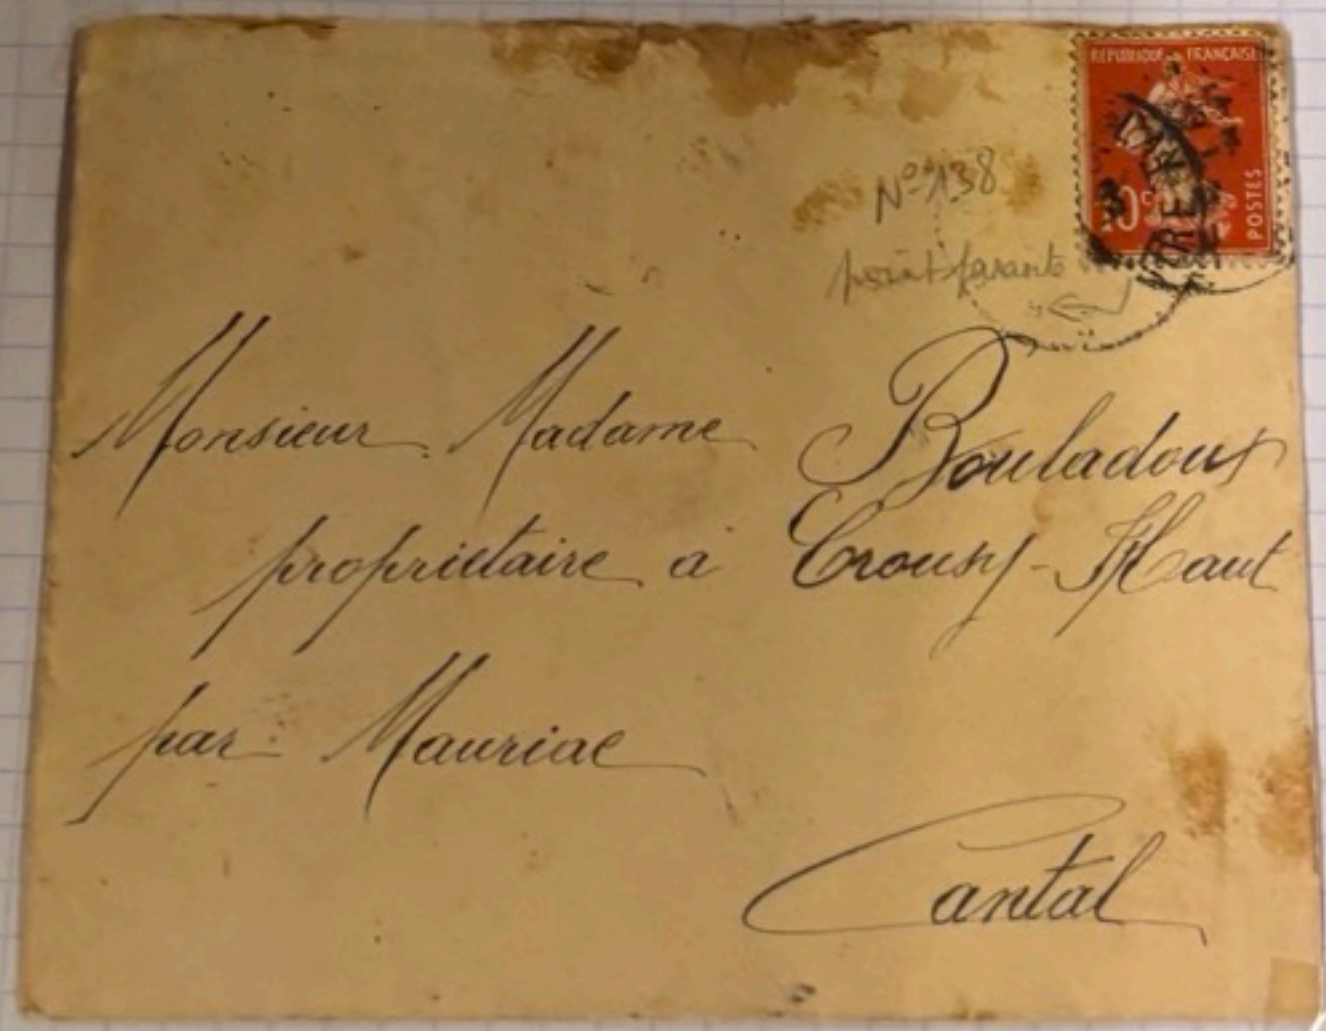 RÉPUBLIQUE FRANÇAISE
10c
POSTES
N° 138
Monsieur Madame Bouladoux
propriétaire à Crousy-Haut
par Mauriac
Cantal